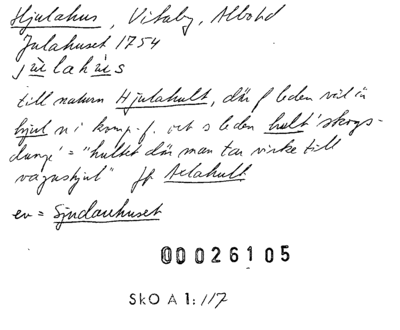 Hjulahus, Vitaby, Albo hd
Julahuset 1754
jülahüs
till naturn Hjulahult, där f leden väl är
hjul n i komp.f. och s leden hult 'skogs-
dunge' = "hultet där man tar virke till
vagnshjul" Jfr Axlahult
ev = Sjudarehuset
00026105
SkO A 1:117